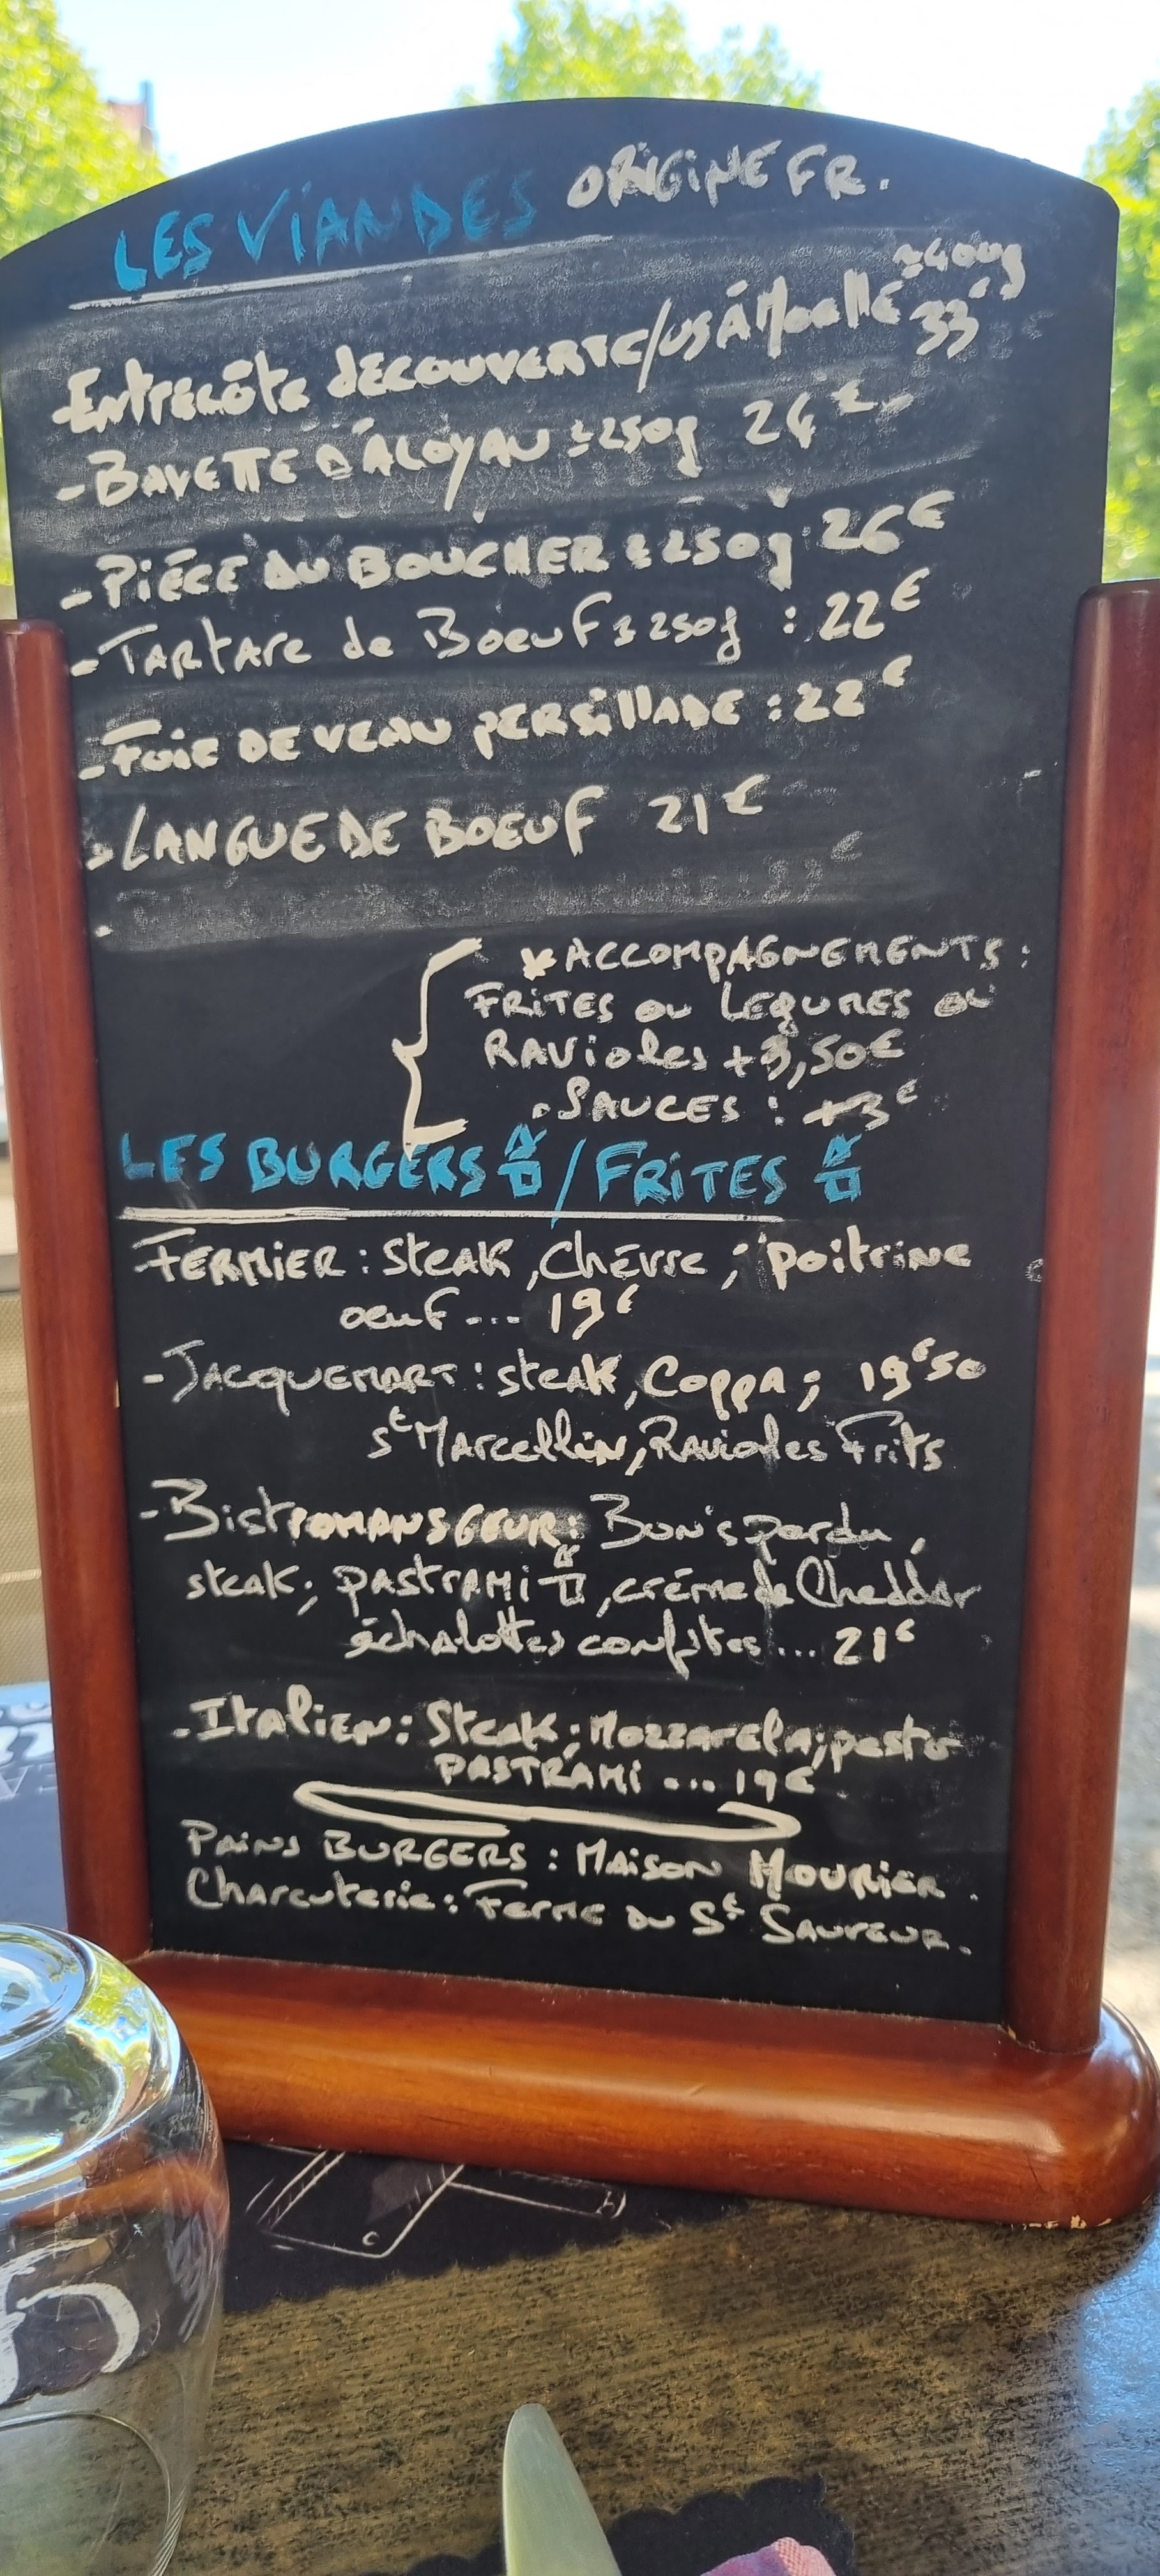 LES VIANDES ORIGINE FR.
≃400g
Entrecôte DECOUVERTE/OS À Moelle 33€
- BAVETTE D'ALOYAU ±250g 24€
- PIÉCE DU BOUCHER ±250g: 26€
- TARTARE de BoeuF ±250g : 22€
- FOIE DE VEAU PERSILLADE : 22€
- LANGUE DE BOEUF 21€
* ACCOMPAGNEMENTS :
FRITES ou LEGUMES OU
RAVioles +3,50€
• SAUCES : +3€
LES BURGERS / FRITES
FERMIER : STEAK, Chévre ; poitrine
oeuf... 19€
- JACQUEMART : steak, Coppa ; 19€50
St Marcellin, Ravioles Frits
- BistROMANSGEUR : Bun's perdu,
steak ; pastrami, créme de Cheddar
échalottes confites ... 21€
- Italien : Steak ; Mozzarela ; pesto
PASTRAMI ... 19€
PAINS BURGERS : MAISON MOURIER.
Charcuterie : Ferme du St SAUVEUR.